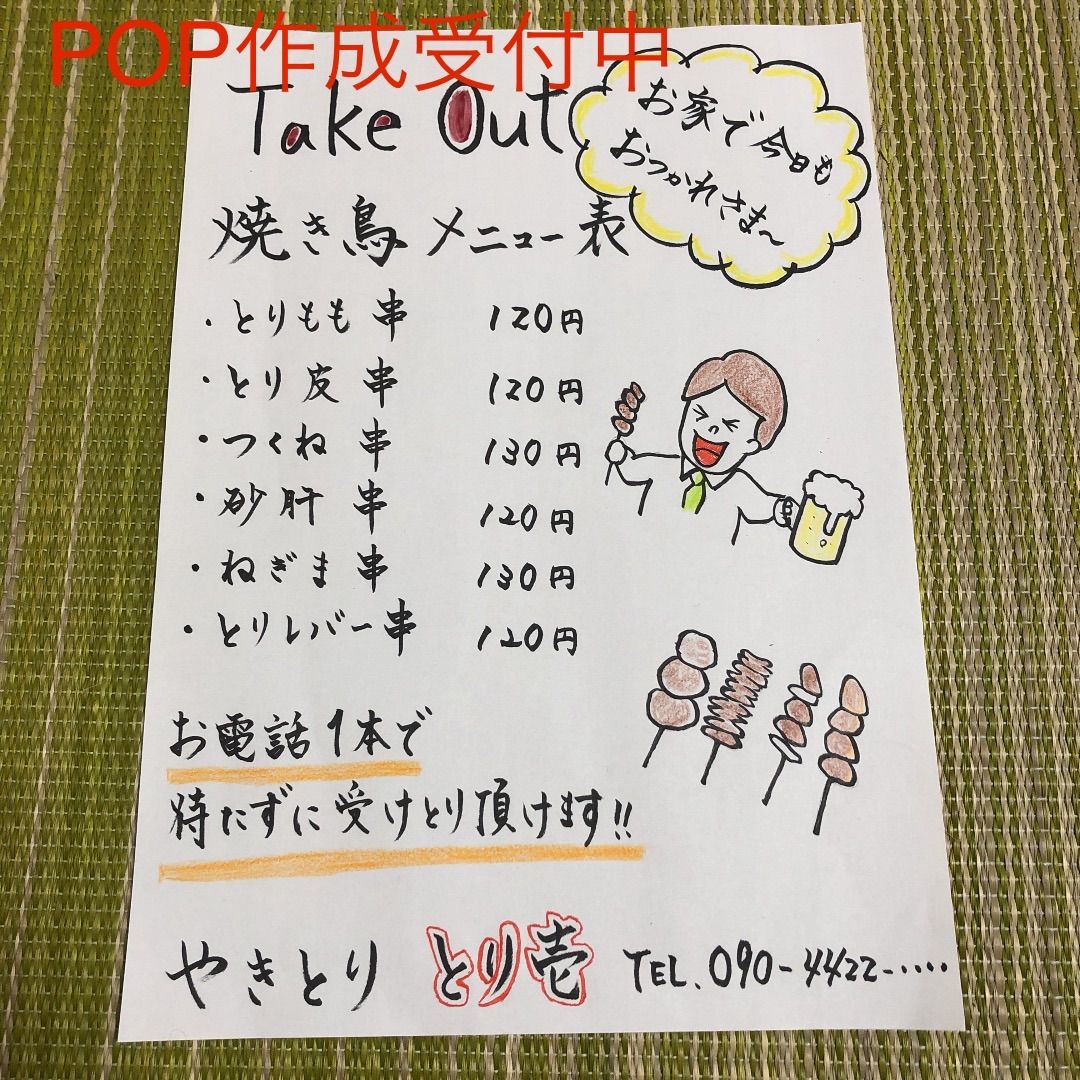 POP作成受付中
Take Out
お家で今日も
おつかれさま〜
焼き鳥 メニュー表
・とりもも 串 120円
・とり皮 串 120円
・つくね 串 130円
・砂肝 串 120円
・ねぎま 串 130円
・とりレバー串 120円
お電話1本で
待たずに受けとり頂けます!!
やきとり とり壱 TEL.090-4422-‥‥